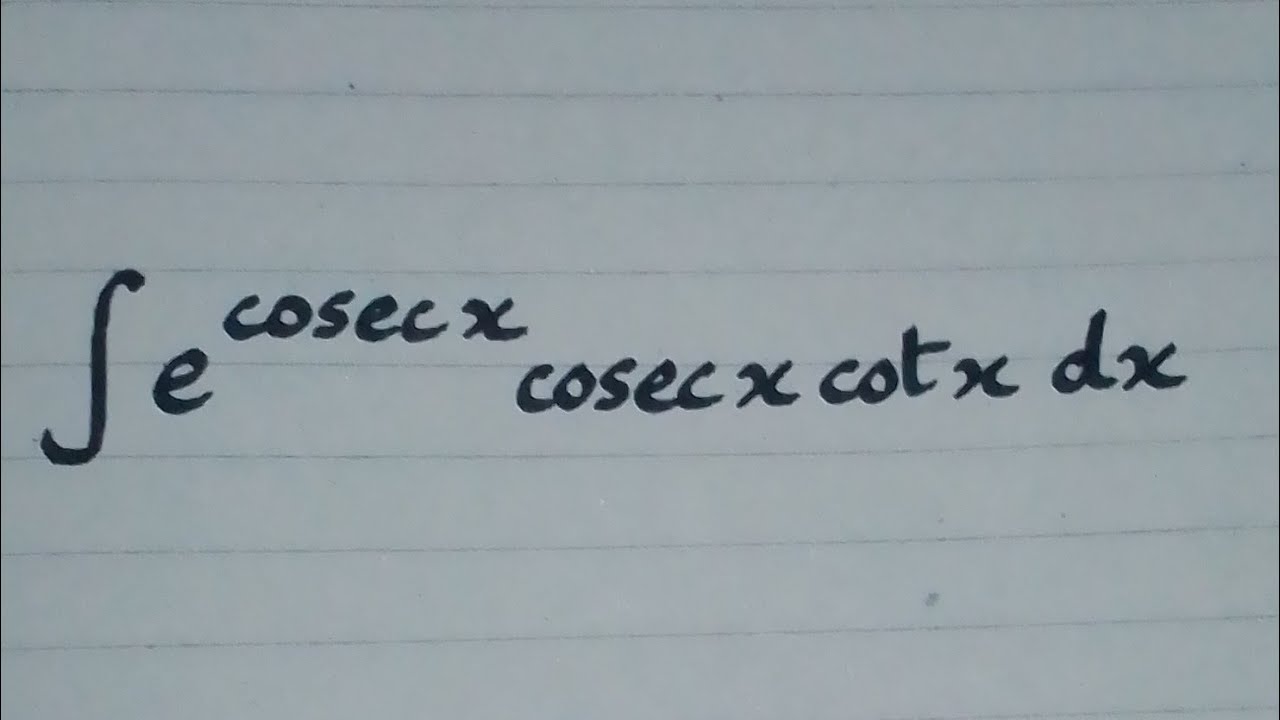 ∫ e^cosec x cosec x cot x dx